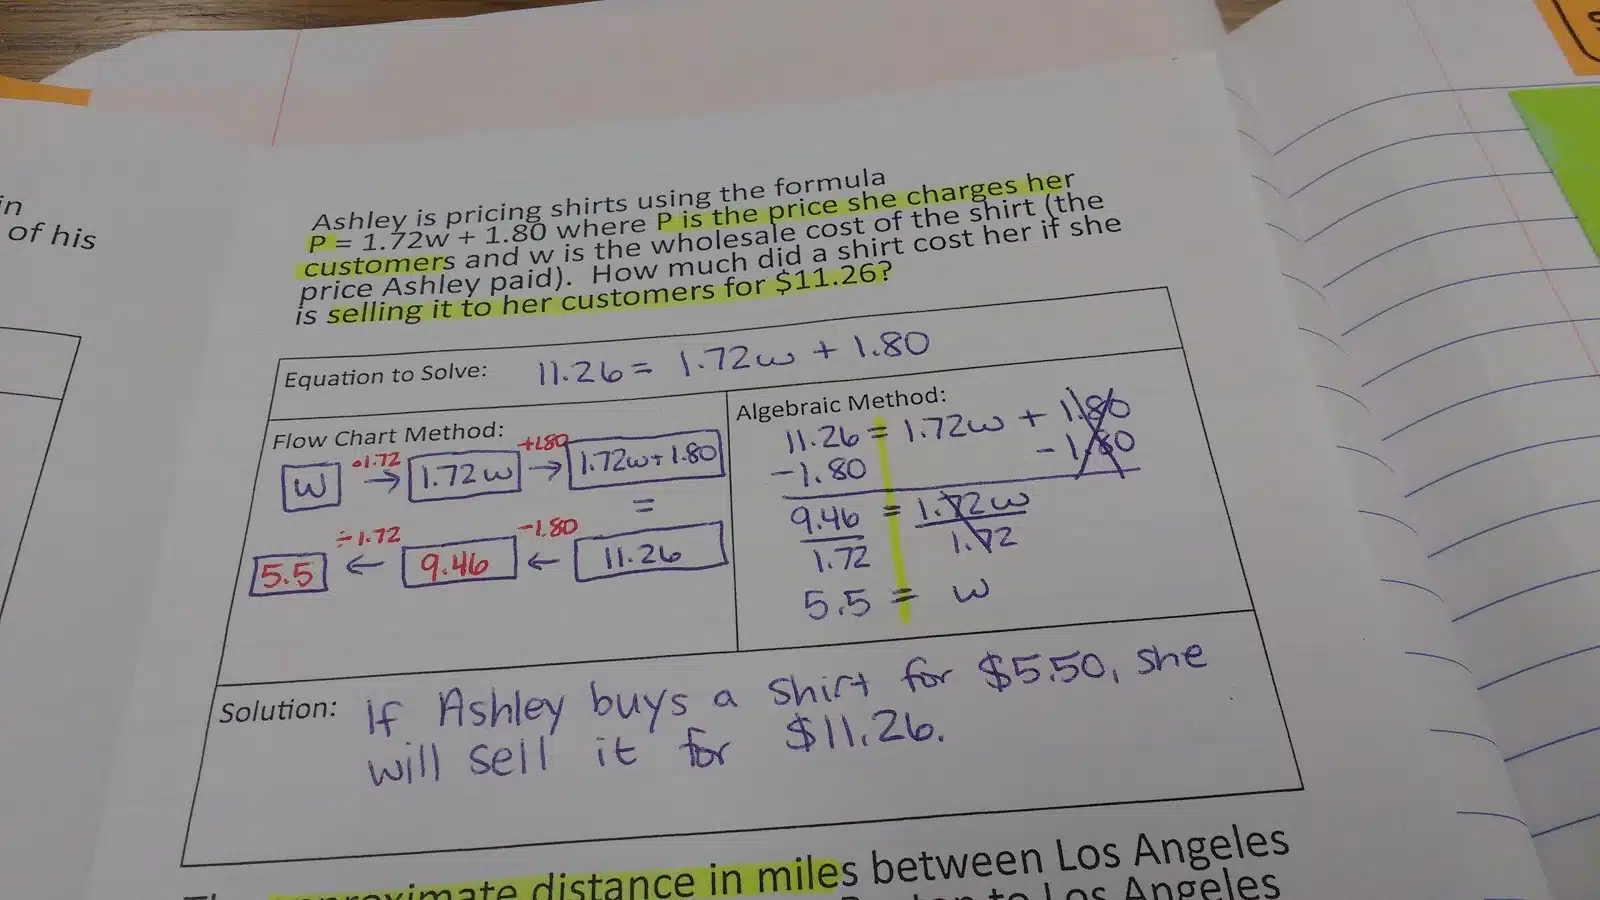 of his
Ashley is pricing shirts using the formula
P = 1.72w + 1.80 where P is the price she charges her
customers and w is the wholesale cost of the shirt (the
price Ashley paid). How much did a shirt cost her if she
is selling it to her customers for $11.26?
Equation to Solve: 11.26 = 1.72w + 1.80
Flow Chart Method:
•1.72 +1.80
w → 1.72w → 1.72w + 1.80
=
÷1.72 -1.80
5.5 ← 9.46 ← 11.26
Algebraic Method:
11.26 = 1.72w + 1.80
-1.80 -1.80
9.46 = 1.72w
1.72 1.72
5.5 = w
Solution: If Ashley buys a shirt for $5.50, she
will sell it for $11.26.
distance in miles between Los Angeles
to Los Angeles